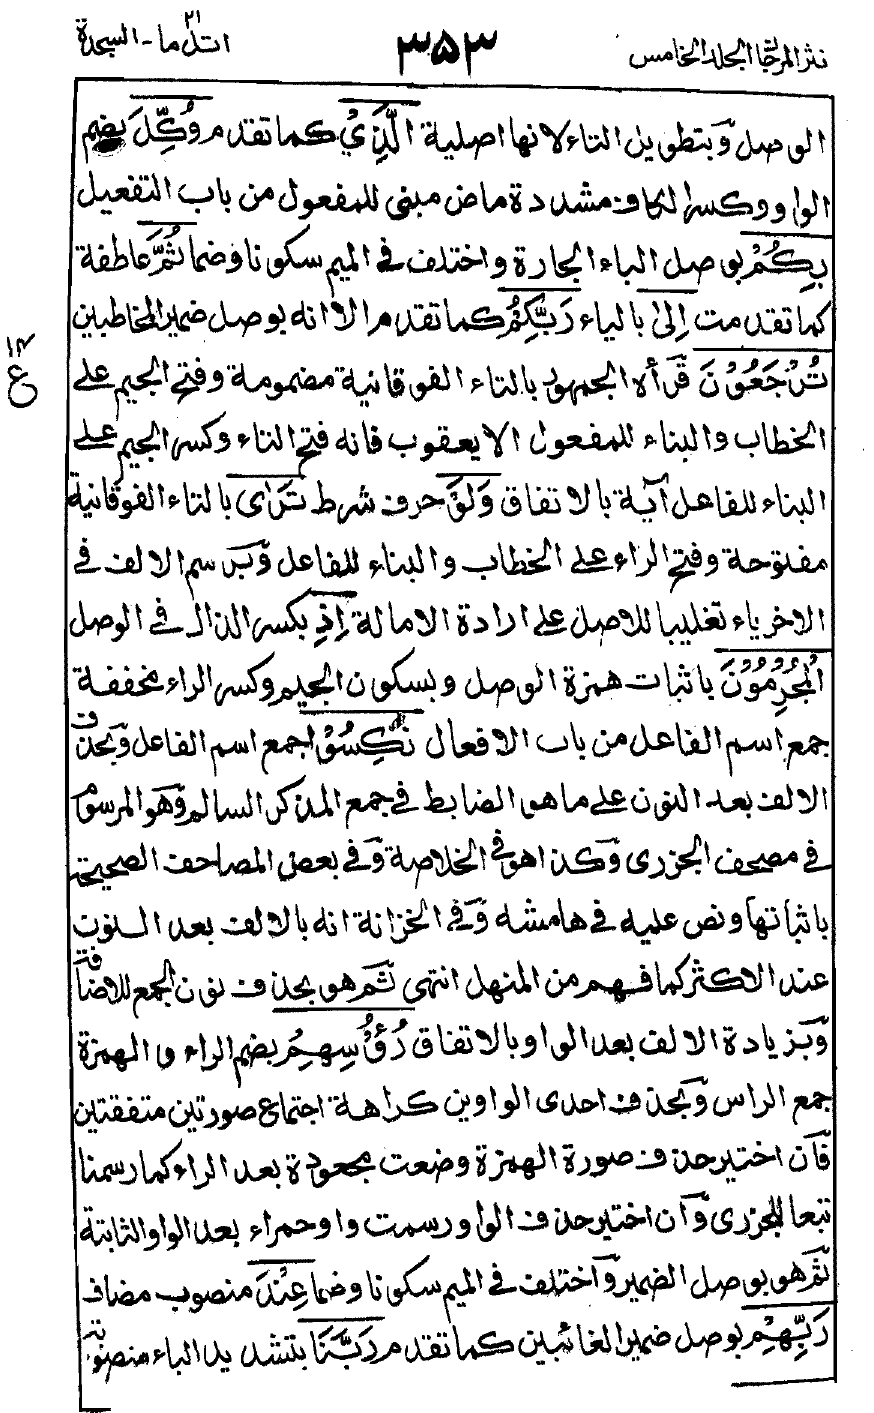 نثر المرجان المجلد الخامس ٣٥٣ اتل ما ٢١ - السجدة
الوصل وبتطويل التاء لانها اصلية الَّذِيْ كما تقدم وُكِّلَ بضم
الواو وكسر الكاف مشددة ماض مبنى للمفعول من باب التفعيل
بِكُمْ بوصل الباء الجارة واختلف فى الميم سكونا وضما ثُمَّ عاطفة
كما تقدمت اِلىٰ بالياء رَبِّكُمْ كما تقدم الا انه بوصل ضمير المخاطبين
تُرْجَعُوْنَ قرأه الجمهور بالتاء الفوقانية مضمومة وفتح الجيم على
الخطاب والبناء للمفعول الا يعقوب فانه فتح التاء وكسر الجيم على
البناء للفاعل آية بالاتفاق وَلَوْ حرف شرط تَرٰى بالتاء الفوقانية
مفتوحة وفتح الراء على الخطاب والبناء للفاعل وبرسم الالف فى
الاخر ياء تغليبا للاصل على ارادة الامالة اِذِ بكسر الذال فى الوصل
الْمُجْرِمُوْنَ باثبات همزة الوصل وبسكون الجيم وكسر الراء مخففة
جمع اسم الفاعل من باب الافعال نٰكِسُوْا جمع اسم الفاعل وبحذف
الالف بعد النون على ما هو الضابط فى جمع المذكر السالم وهو المرسوم
فى مصحف الجزرى وكذا هو فى الخلاصة وفى بعض المصاحف الصحيحة
باثباتها ونص عليه فى هامشه وفى الخزانة انه بالالف بعد النون
عند الاكثر كما فهم من المنهل انتهى ثم هو بحذف نون الجمع للاضافة
وبزيادة الالف بعد الواو بالاتفاق رُؤُسِهِمْ بضم الراء والهمزة
جمع الراس وبحذف احدى الواوين كراهة اجتماع صورتين متفقتين
فان اختير حذف صورة الهمزة وضعت مجعودة بعد الراء كما رسمنا
تبعا للجزرى وان اختير حذف الواو رسمت واو حمراء بعد الواو الثابتة
ثم هو بوصل الضمير واختلف فى الميم سكونا وضما عِنْدَ منصوب مضاف
رَبِّهِمْ بوصل ضمير الغائبين كما تقدم رَبَّنَا بتشديد الباء منصوبة
١٤
ع